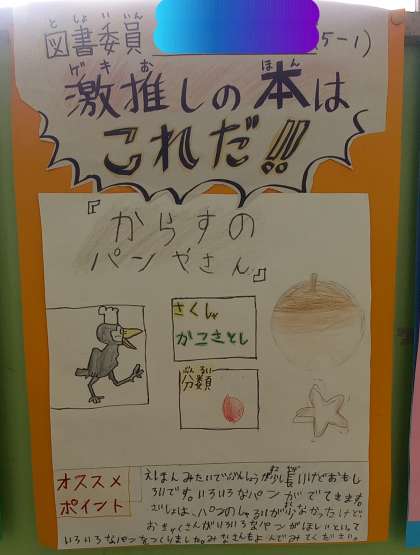 としょいいん
図書委員 (5-1)
げきお ほん
激推しの本は
これだ!!
『からすの
パンやさん』
さくしゃ
かこさとし
ぶんるい
分類
オススメ
ポイント
えほんみたいでぶんしょうが少し長いけどおもし
ろいです。いろいろなパンがでてきます。
さいしょは、パンのしゅるいが少なかったけど、
おきゃくさんがいろいろなパンがほしいといって
いろいろなパンをつくりました。みなさんもよんでみてください。